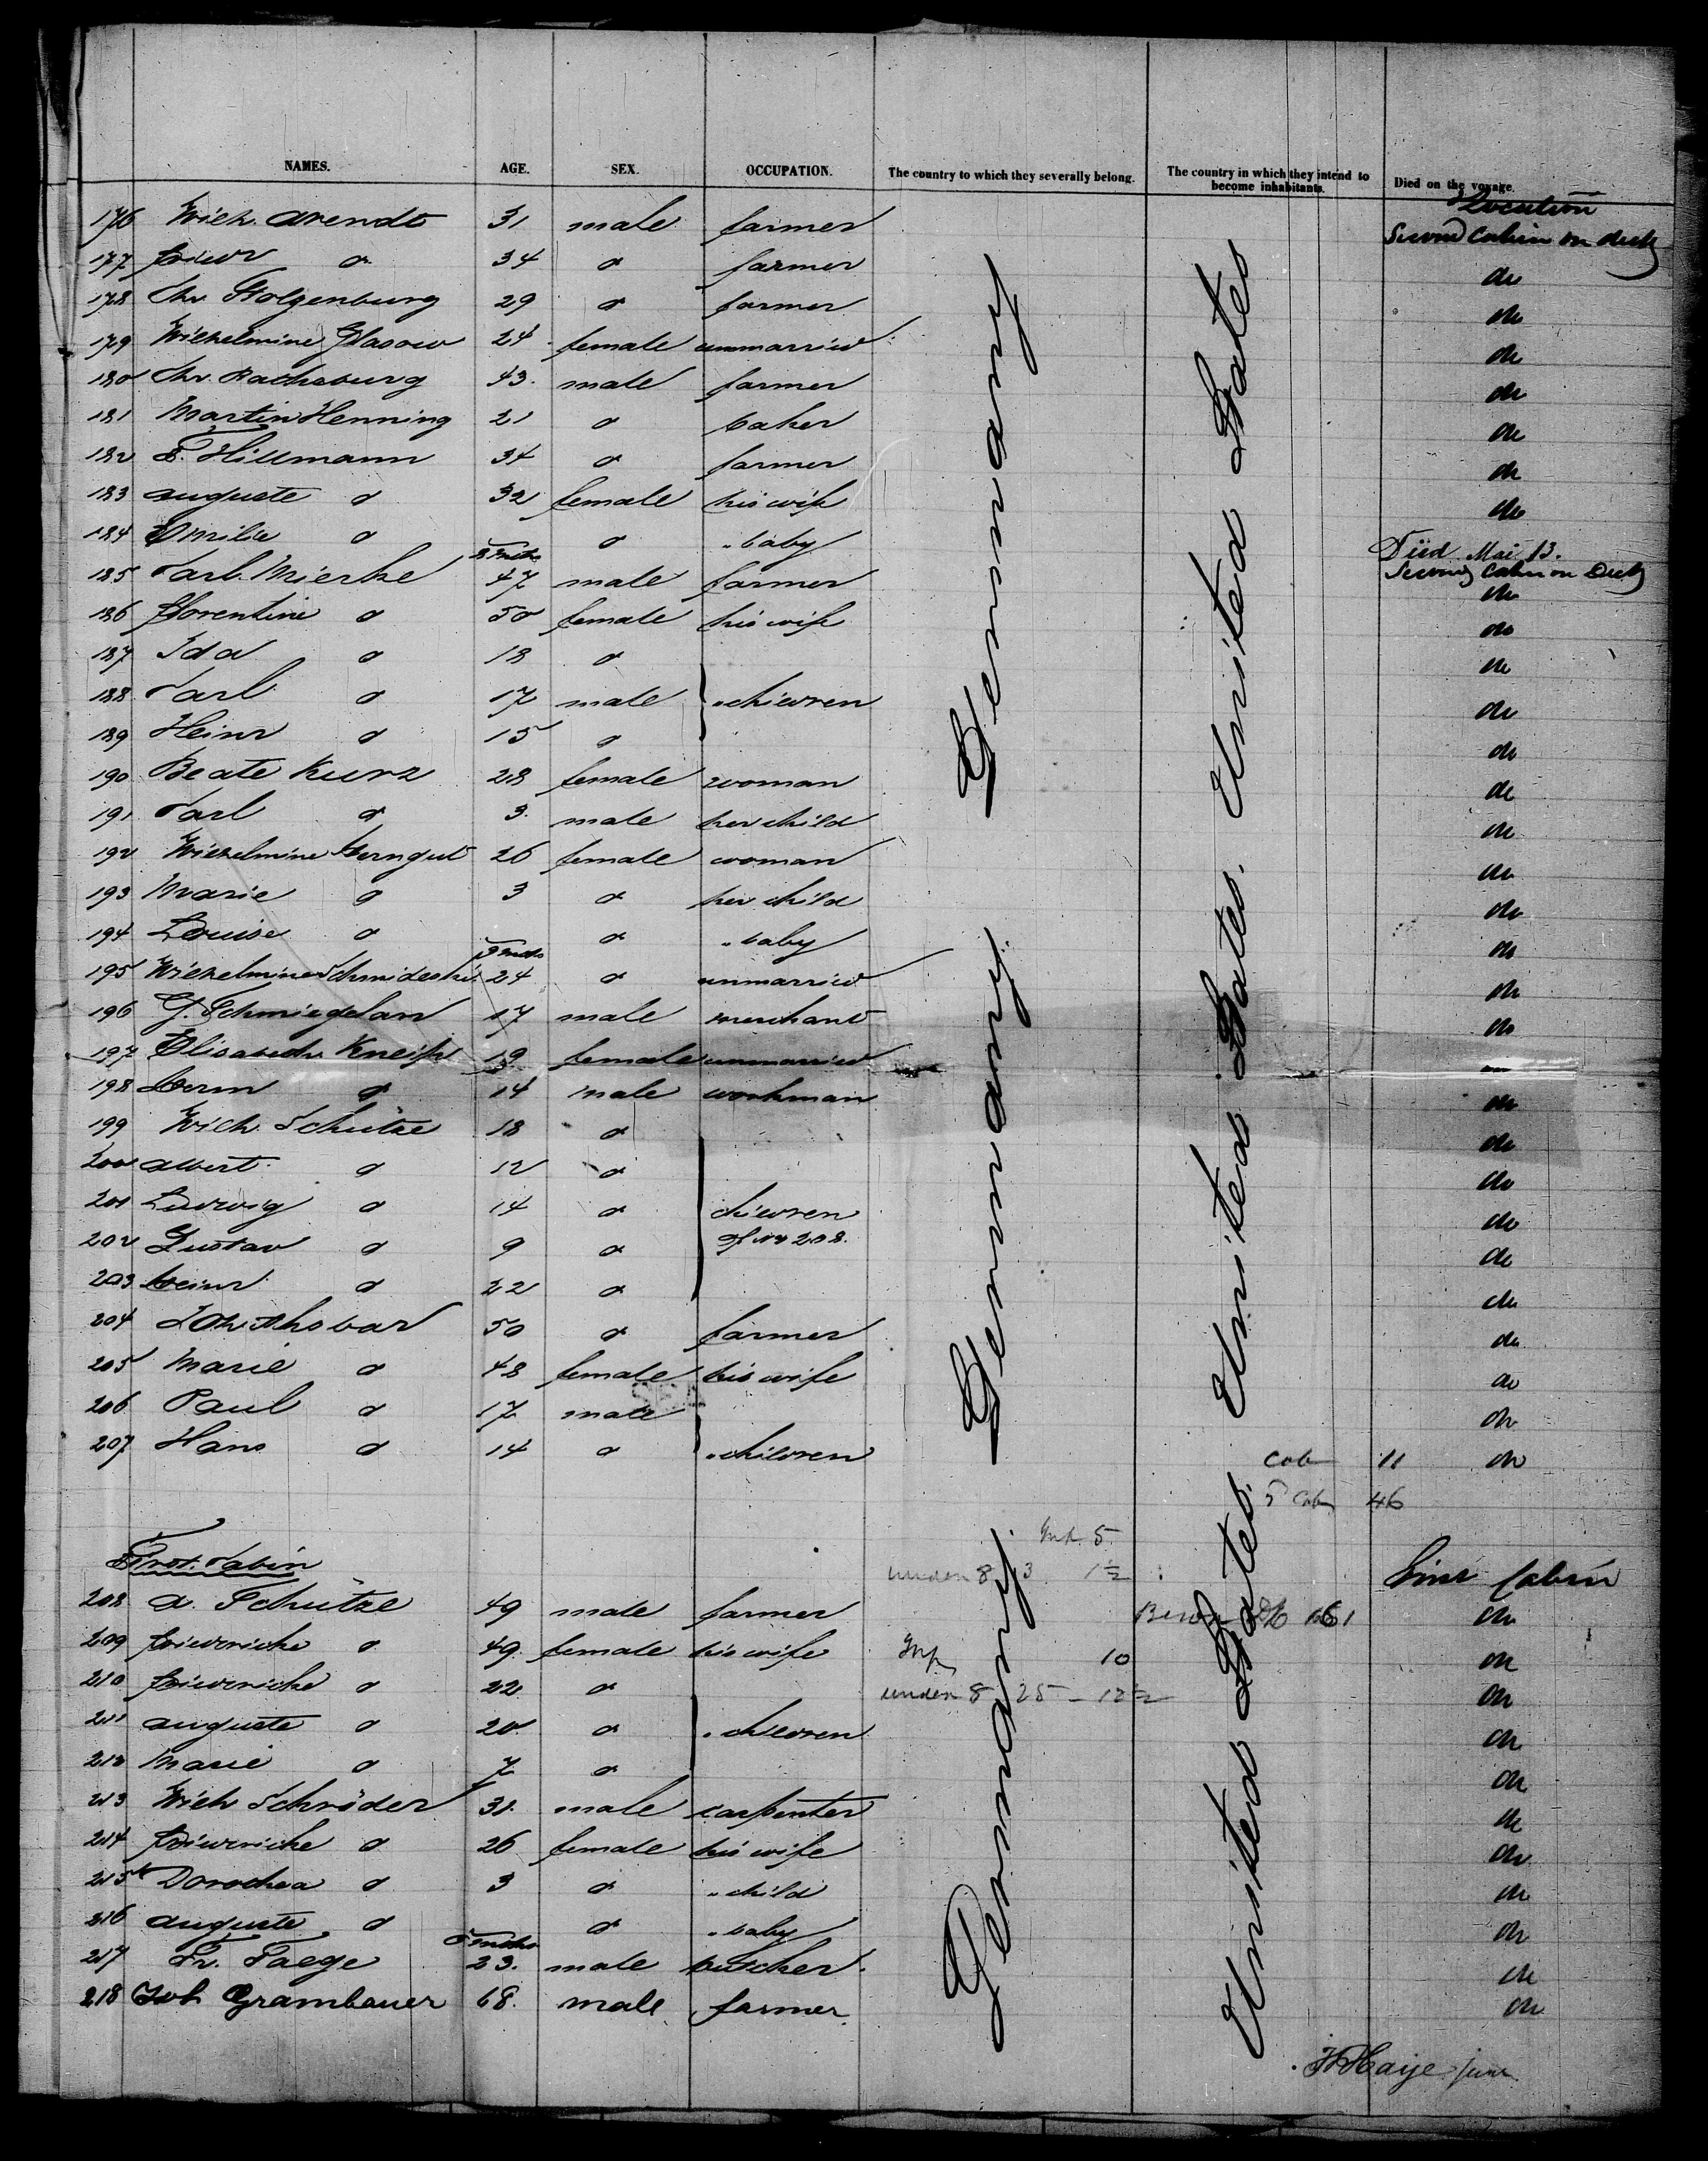 NAMES. AGE. SEX. OCCUPATION. The country to which they severally belong. The country in which they intend to become inhabitants. Died on the voyage.
Location
176 Wilh. Arendt 31 male farmer Second Cabin on deck
177 Friedr d 34 d farmer do
178 Chr. Stolzenburg 29 d farmer do
179 Wilhelmine Glasow 24 female unmarried do
180 Chr. Rathsburg 43. male farmer do
181 Martin Henning 21 d baker do
182 F. Hillmann 34 d farmer do
183 Auguste d 32 female his wife do
184 Emilie d 8 mths d " baby Died Mai 13.
185 Carl Mierke 47 male farmer Second Cabin on Deck
186 Florentine d 50 female his wife do
187 Ida d 18 d do
188 Carl d 17 male " children do
189 Heinr d 15 d do
190 Beate Kurz 28 female woman do
191 Carl d 3. male her child do
192 Wilhelmine Gerngut 26 female woman do
193 Marie d 3 d her child do
194 Louise d 9 mths d " baby do
195 Wilhelmine Schmideski 24 d unmarried do
196 G. Schmiegelan 17 male merchant do
197 Elisabeth Kneip 19 female unmarried do
198 Herm d 14 male workman do
199 Wilh. Schütze 18 d do
200 Albert d 12 d do
201 Ludwig d 14 d children do
202 Gustav d 9 d of No 208. do
203 Heinr d 22 d do
204 50 d farmer do
205 Marie d 48 female his wife do
206 Paul d 17 male do
207 Hans d 14 d " children do
Cab 11
Cab 46
Inf. 5
under 8 3 1½
First Cabin First Cabin
208 A. Schütze 49 male farmer do
161
209 Friedericke d 49. female his wife do
Inf 10
210 Friedericke d 22 d do
under 8 25 - 12½
211 Auguste d 20 d " children do
212 Marie d 7 d do
213 Wilh Schröder 31. male carpenter do
214 Friedericke d 26 female his wife do
215 Dorothea d 3 d " child do
216 Auguste d 5 mths d " baby do
217 Fr. Faege 23. male butcher. do
218 Joh Grambauer 68. male farmer. do
Germany Germany. Germany.
United States United States. United States.